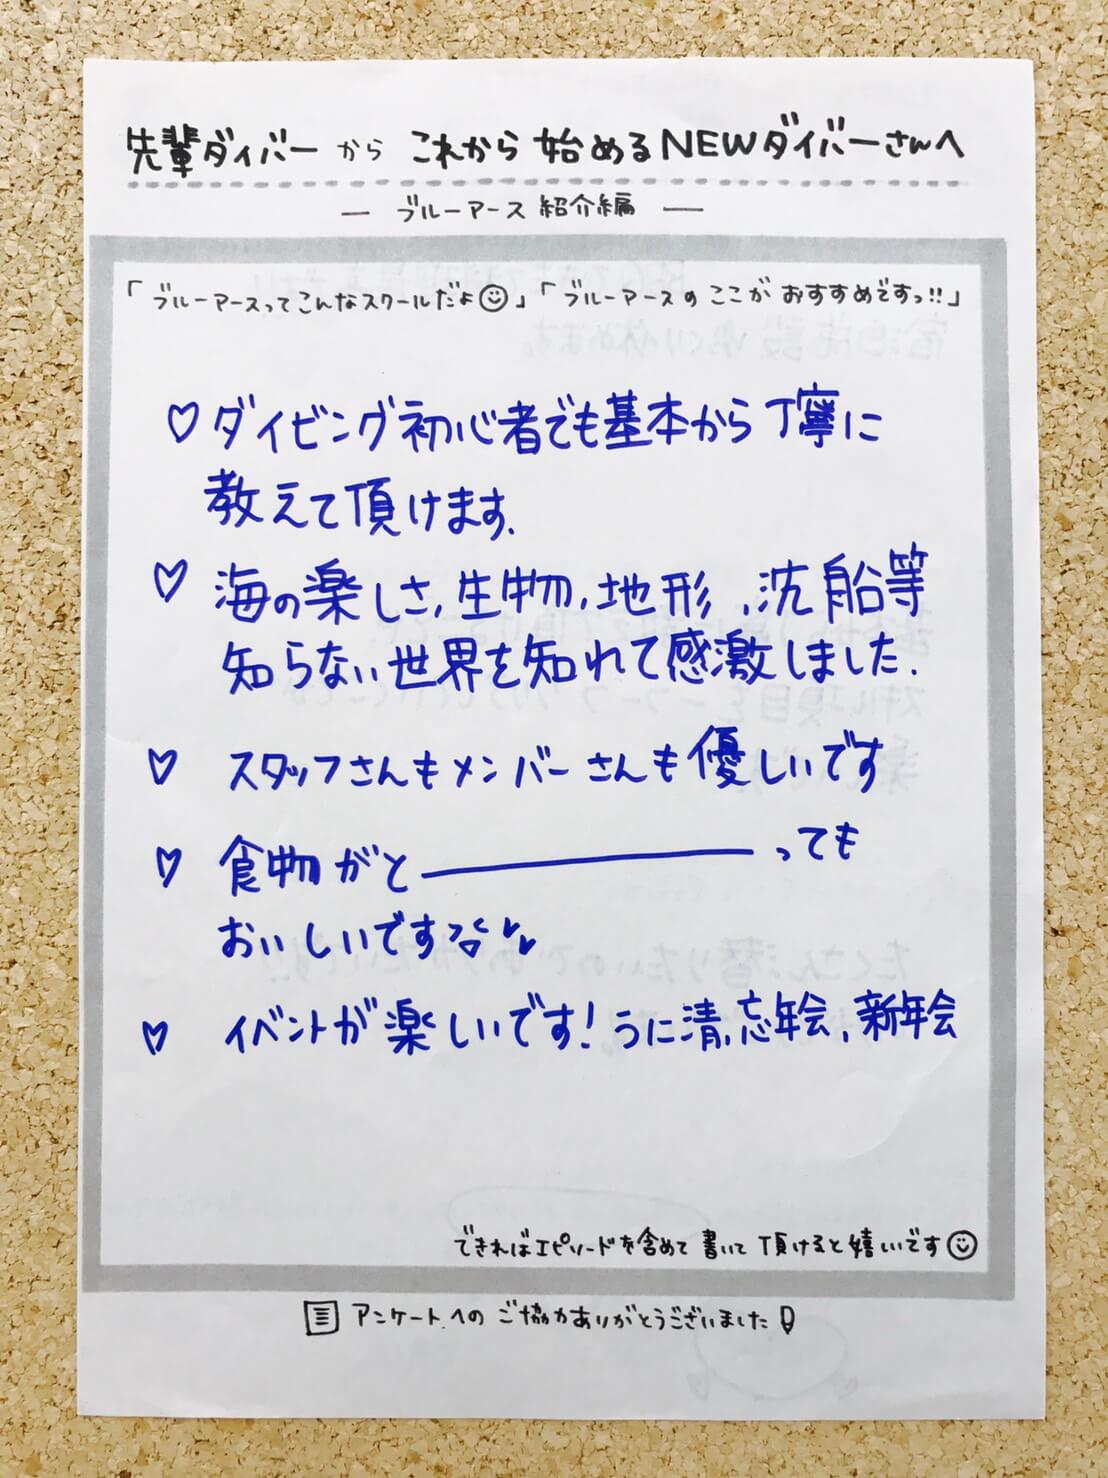 先輩ダイバーから これから始めるNEWダイバーさんへ
― ブルーアース紹介編 ―
「ブルーアースってこんなスクールだよ☺」「ブルーアースの ここが おすすめですっ!!」
♡ダイビング初心者でも基本から丁寧に
教えて頂けます.
♡海の楽しさ,生物,地形,沈船等
知らない世界を知れて感激しました.
♡スタッフさんもメンバーさんも優しいです
♡食物がと―――っても
おいしいです
♡イベントが楽しいです!うに清,忘年会,新年会
できればエピソードを含めて書いて頂けると嬉しいです☺
アンケートへのご協力ありがとうございました